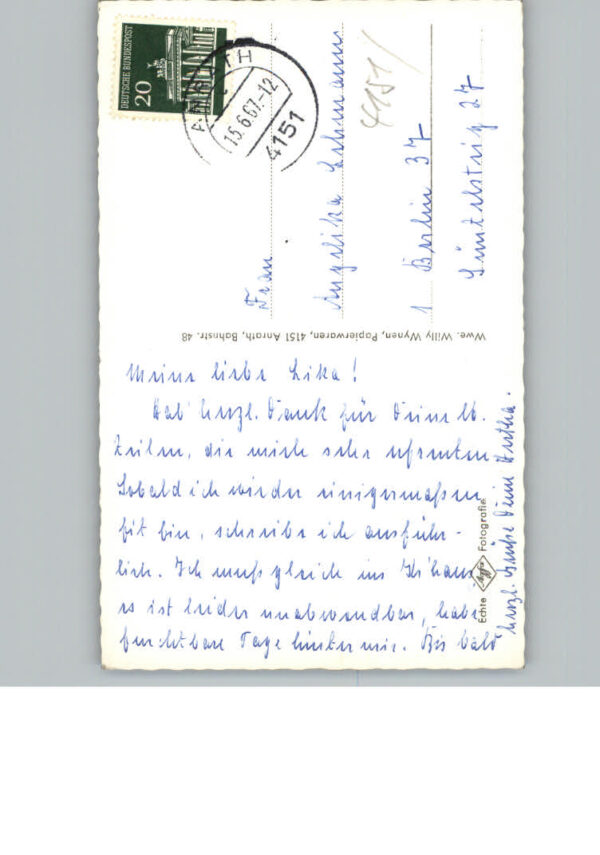 DEUTSCHE BUNDESPOST
20
ANRATH
15.6.67.-12
4151
4151/
Frau
Angelika Lehmann
1 Berlin 37
27
Wwe. Willy Wynen, Papierwaren, 4151 Anrath, Bahnstr. 48
Echte Agfa Fotografie
Meine liebe Lika!
Hab' herzl. Dank für Deine lb.
Zeilen, die mich sehr erfreuten.
Sobald ich wieder einigermaßen
fit bin, schreibe ich ausführ-
lich. Ich muß gleich ins Kr'haus
es ist leider unabwendbar, habe
furchtbare Tage hinter mir. Bis bald
herzl. Grüße Deine Hertha.